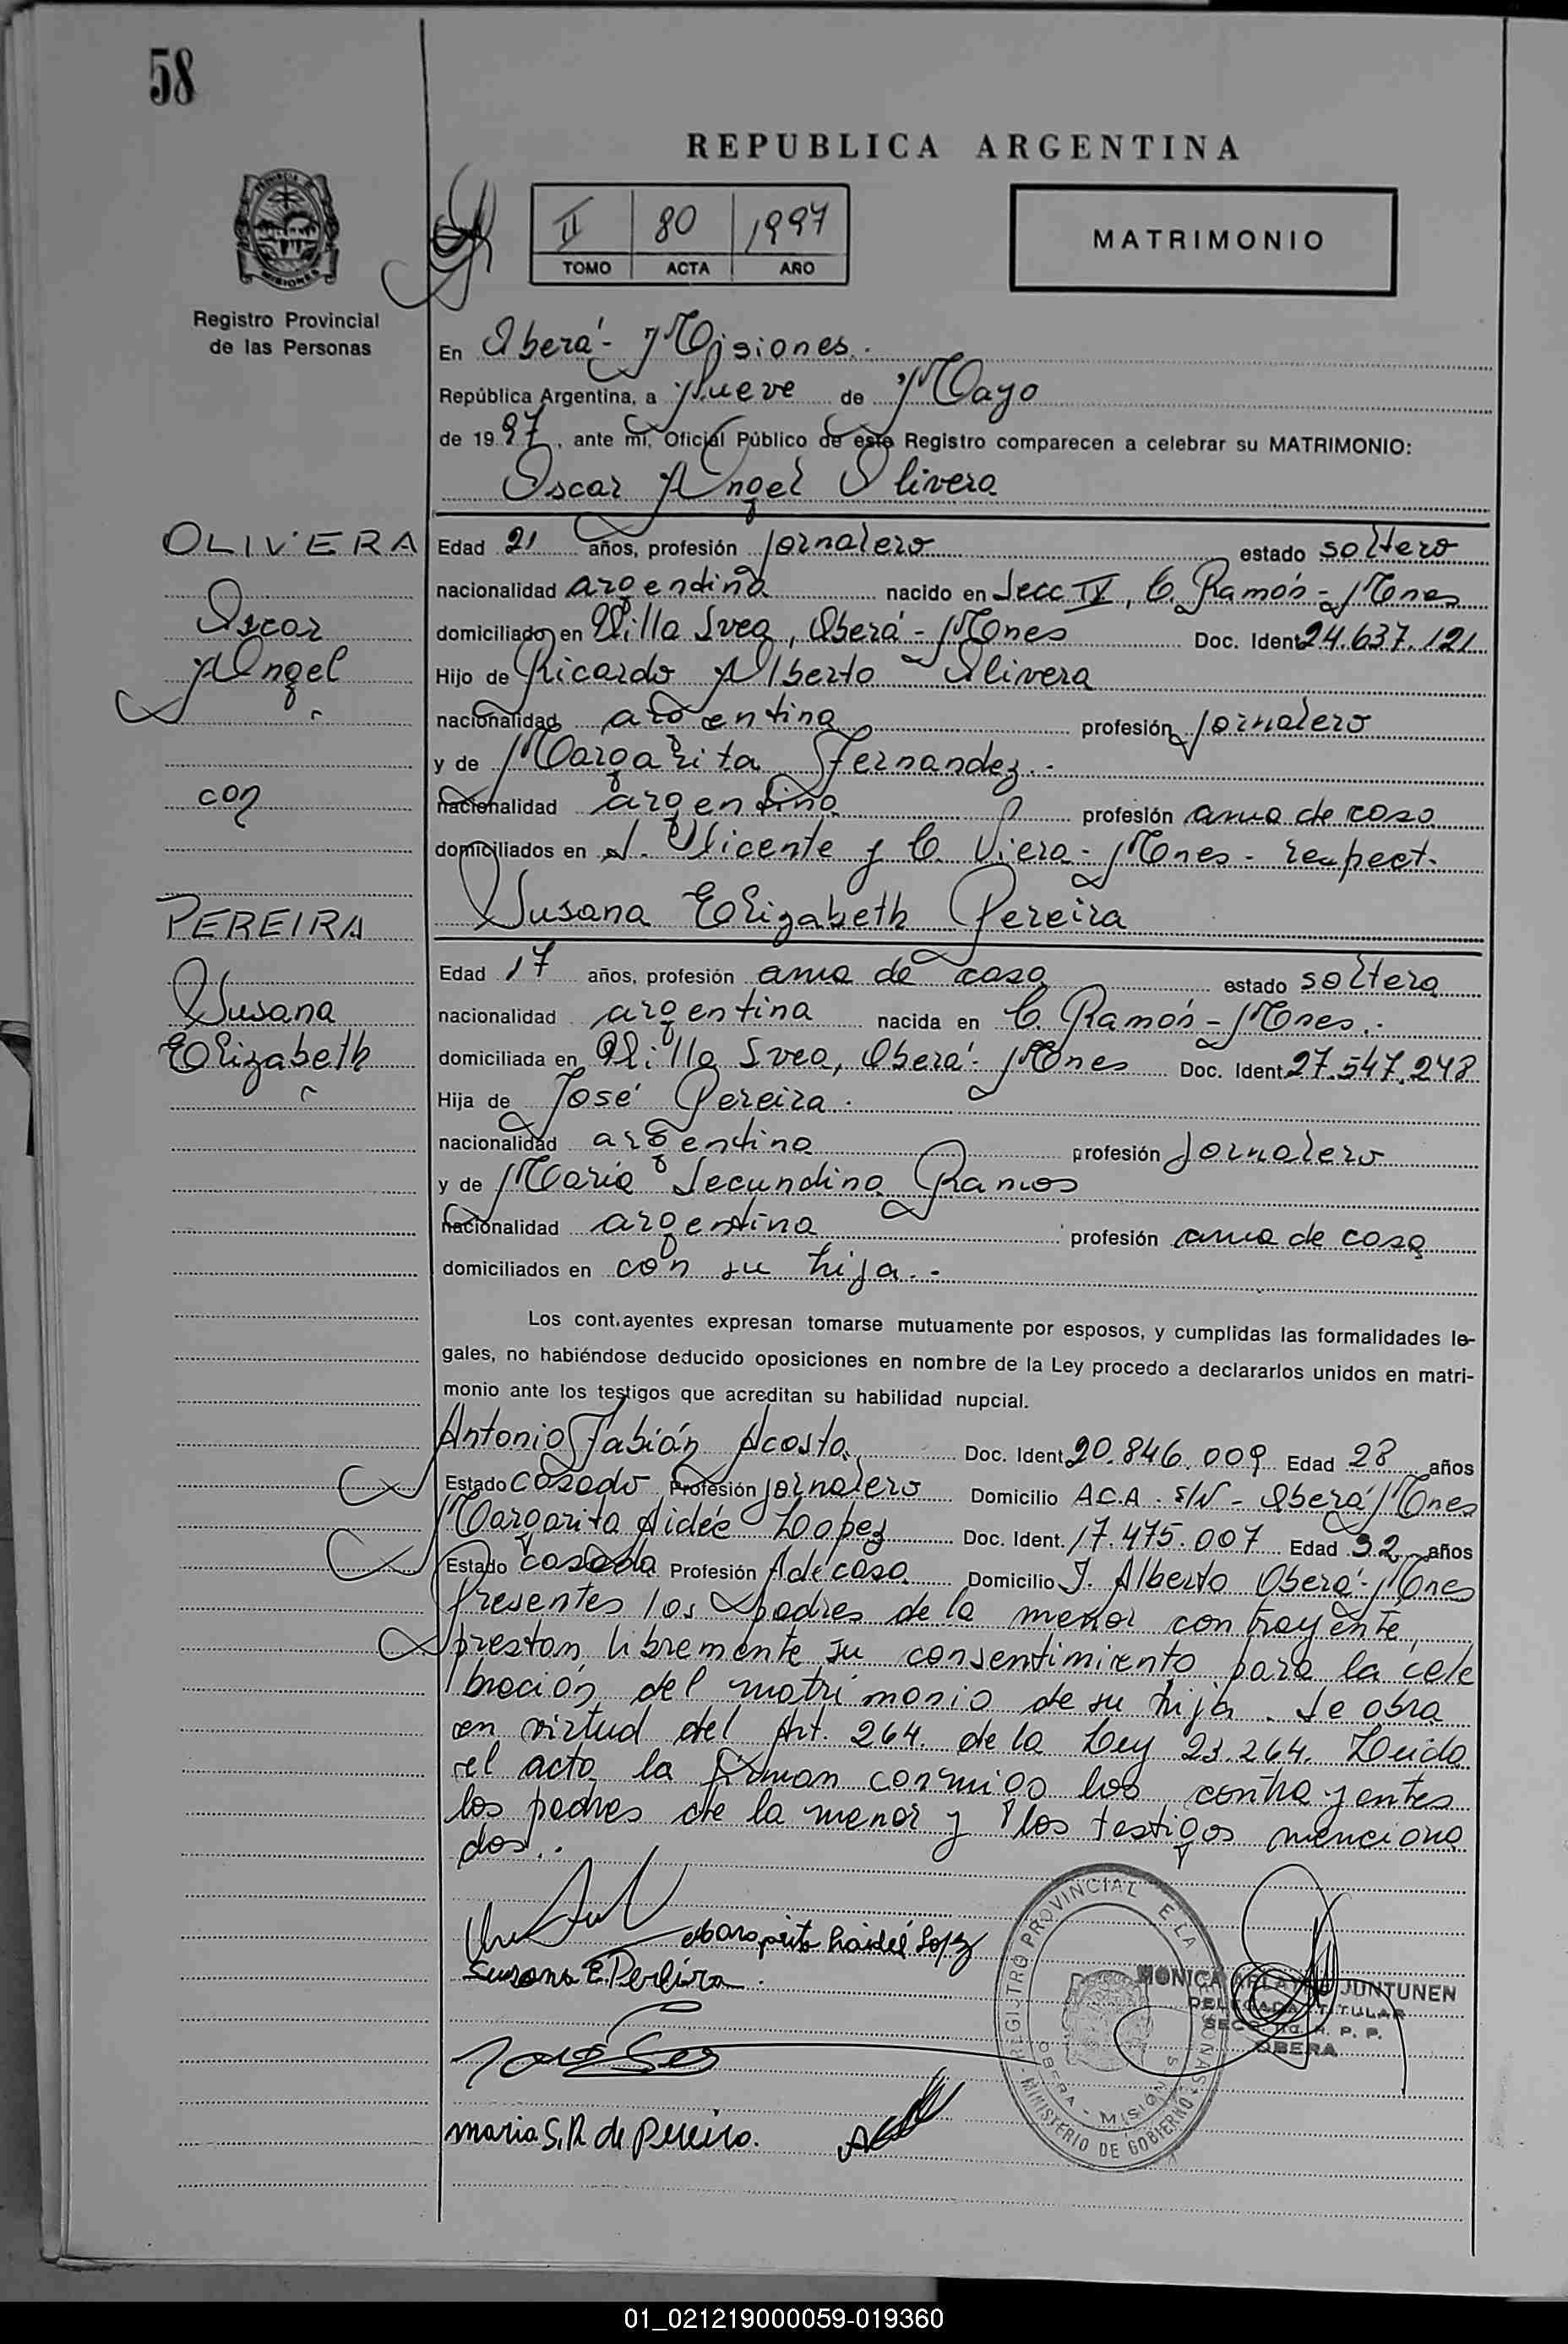 58
REPUBLICA ARGENTINA
II 80 1997
TOMO ACTA AÑO
MATRIMONIO
PROVINCIA DE
MISIONES
Registro Provincial
de las Personas
En Oberá - Misiones.
República Argentina, a Nueve de Mayo
de 1997, ante mí, Oficial Público de este Registro comparecen a celebrar su MATRIMONIO:
Oscar Angel Olivera
OLIVERA
Oscar
Angel
con
PEREIRA
Susana
Elizabeth
Edad 21 años, profesión jornalero estado soltero
nacionalidad argentina nacido en Secc IV, C. Ramón - Mnes
domiciliado en Villa Svea, Oberá - Mnes Doc. Ident 24.637.121
Hijo de Ricardo Alberto Olivera
nacionalidad argentina profesión jornalero
y de Margarita Fernandez.-
nacionalidad argentina profesión ama de casa
domiciliados en S. Vicente y C. Viera - Mnes - respect.
Susana Elizabeth Pereira
Edad 17 años, profesión ama de casa estado soltera
nacionalidad argentina nacida en C. Ramón - Mnes.
domiciliada en Villa Svea, Oberá - Mnes Doc. Ident. 27.547.248
Hija de José Pereira.
nacionalidad argentina profesión Jornalero
y de María Secundina Ramos
nacionalidad argentina profesión ama de casa
domiciliados en con su hija.-
Los cont.ayentes expresan tomarse mutuamente por esposos, y cumplidas las formalidades le-
gales, no habiéndose deducido oposiciones en nombre de la Ley procedo a declararlos unidos en matri-
monio ante los testigos que acreditan su habilidad nupcial.
Antonio Fabián Acosta Doc. Ident 20.846.009 Edad 28 años
Estado casado Profesión jornalero Domicilio A.C.A. S/N - Oberá Mnes
Margarita Aidée Lopez Doc. Ident. 17.475.007 Edad 32 años
Estado casada Profesión A de casa Domicilio J. Alberto Oberá - Mnes
Presentes los padres de la menor contrayente,
prestan libremente su consentimiento para la cele
bración del matrimonio de su hija. Se obra
en virtud del Art. 264. de la Ley 23.264. Leida
el acta la firman conmigo los contrayentes
los padres de la menor y los testigos menciona
dos..
Susana E. Pereira.
maria S. R. de Pereira.
REGISTRO PROVINCIAL DE LAS PERSONAS
OBERA - MISIONES
MINISTERIO DE GOBIERNO
MONICA JUNTUNEN
DELEGADA TITULAR
R. P. P.
OBERA
01_021219000059-019360